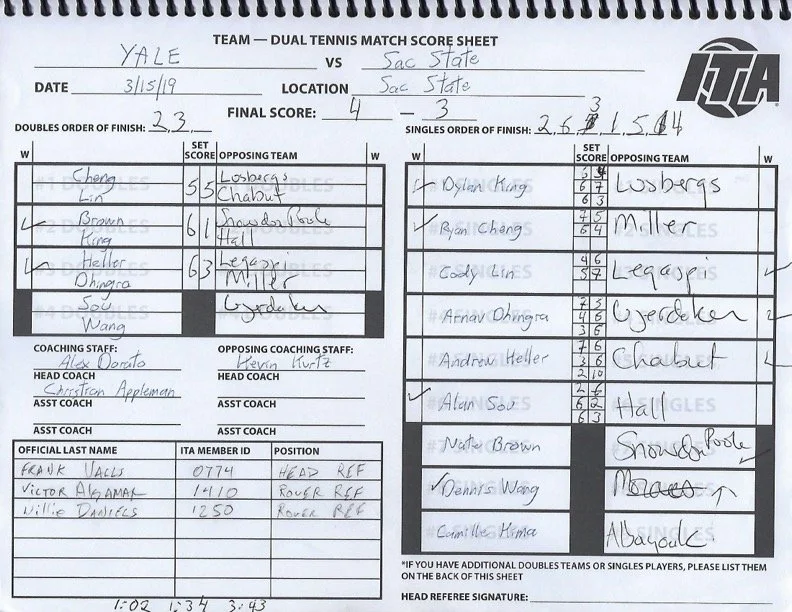 TEAM — DUAL TENNIS MATCH SCORE SHEET
YALE VS Sac State
DATE 3/15/19 LOCATION Sac State
FINAL SCORE: 4 — 3
ITA
DOUBLES ORDER OF FINISH: 2, 3,
SINGLES ORDER OF FINISH: 2, 6, 3, 1, 5, 4
W SET SCORE OPPOSING TEAM W
Cheng Lin 5 5 Losbergs Chabut
✓ Brown King 6 1 Snowdon Poole Hall
✓ Heller Dhingra 6 3 Legaspi Miller
Sou Wang Gjerdaker
W SET SCORE OPPOSING TEAM W
Dylan King 6 7 6 3 Lusbergs
✓ Ryan Cheng 7 5 6 4 Miller
Cody Lin 4 6 5 7 Legaspi ✓
Arnav Dhingra 7 5 4 6 3 6 Gjerdaker ✓
Andrew Heller 7 6 3 6 2 10 Chabut ✓
✓ Alan Sou 2 6 6 2 6 3 Hall
Nate Brown Snowdon Poole ✓
✓ Dennis Wang Moraes
Camille Kima Albayouk
COACHING STAFF: OPPOSING COACHING STAFF:
Alex Dorato Kevin Kurtz
HEAD COACH HEAD COACH
Christian Appleman
ASST COACH ASST COACH
ASST COACH ASST COACH
OFFICIAL LAST NAME ITA MEMBER ID POSITION
FRANK VALLS 0774 HEAD REF
VICTOR ALGAMAR 1410 ROVER REF
Willie DANIELS 1250 ROVER REF
1:02 1:34 3:43
*IF YOU HAVE ADDITIONAL DOUBLES TEAMS OR SINGLES PLAYERS, PLEASE LIST THEM
ON THE BACK OF THIS SHEET
HEAD REFEREE SIGNATURE: